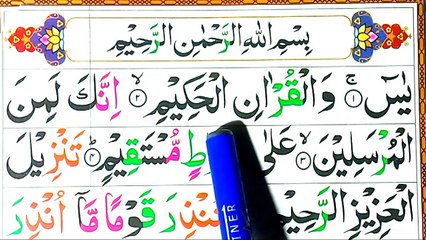 بِسْمِ اللهِ الرَّحْمٰنِ الرَّحِيْمِ
يٰسٓ ۚ ﴿١﴾ وَالْقُرْاٰنِ الْحَكِيْمِ ۙ ﴿٢﴾ اِنَّكَ لَمِنَ
الْمُرْسَلِيْنَ ۙ ﴿٣﴾ عَلٰى مُّسْتَقِيْمٍ ؕ ﴿٤﴾ تَنْزِيْلَ
الْعَزِيْزِ الرَّحِيْمِ قَوْمًا مَّاۤ اُنْذِرَ
TNER